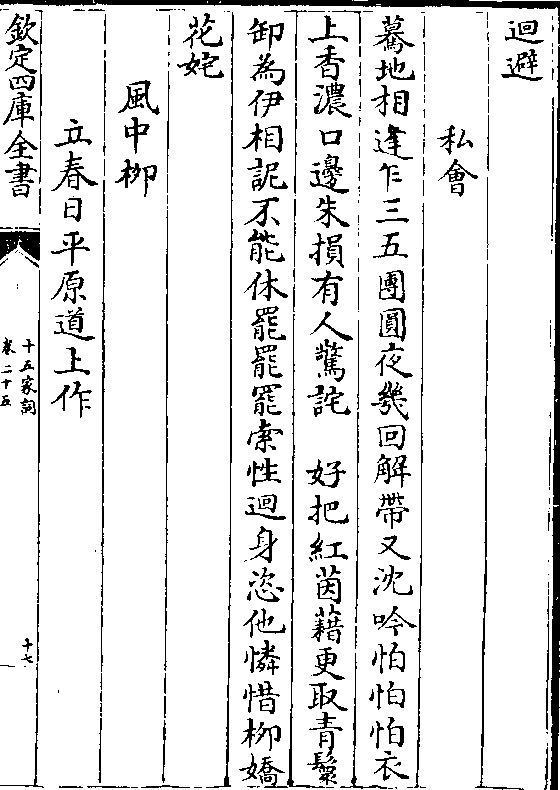 迴避
私會
驀地相逢乍三五團圓夜幾回解帶又沈吟怕怕怕衣
上香濃口邊朱損有人驚詫　好把紅茵藉更取青鬟
卸為伊相詑不能休罷罷罷索性迴身恣他憐惜栁嬌
花姹
風中栁
立春日平原道上作
欽定四庫全書
十五家詞
卷二十五
十七